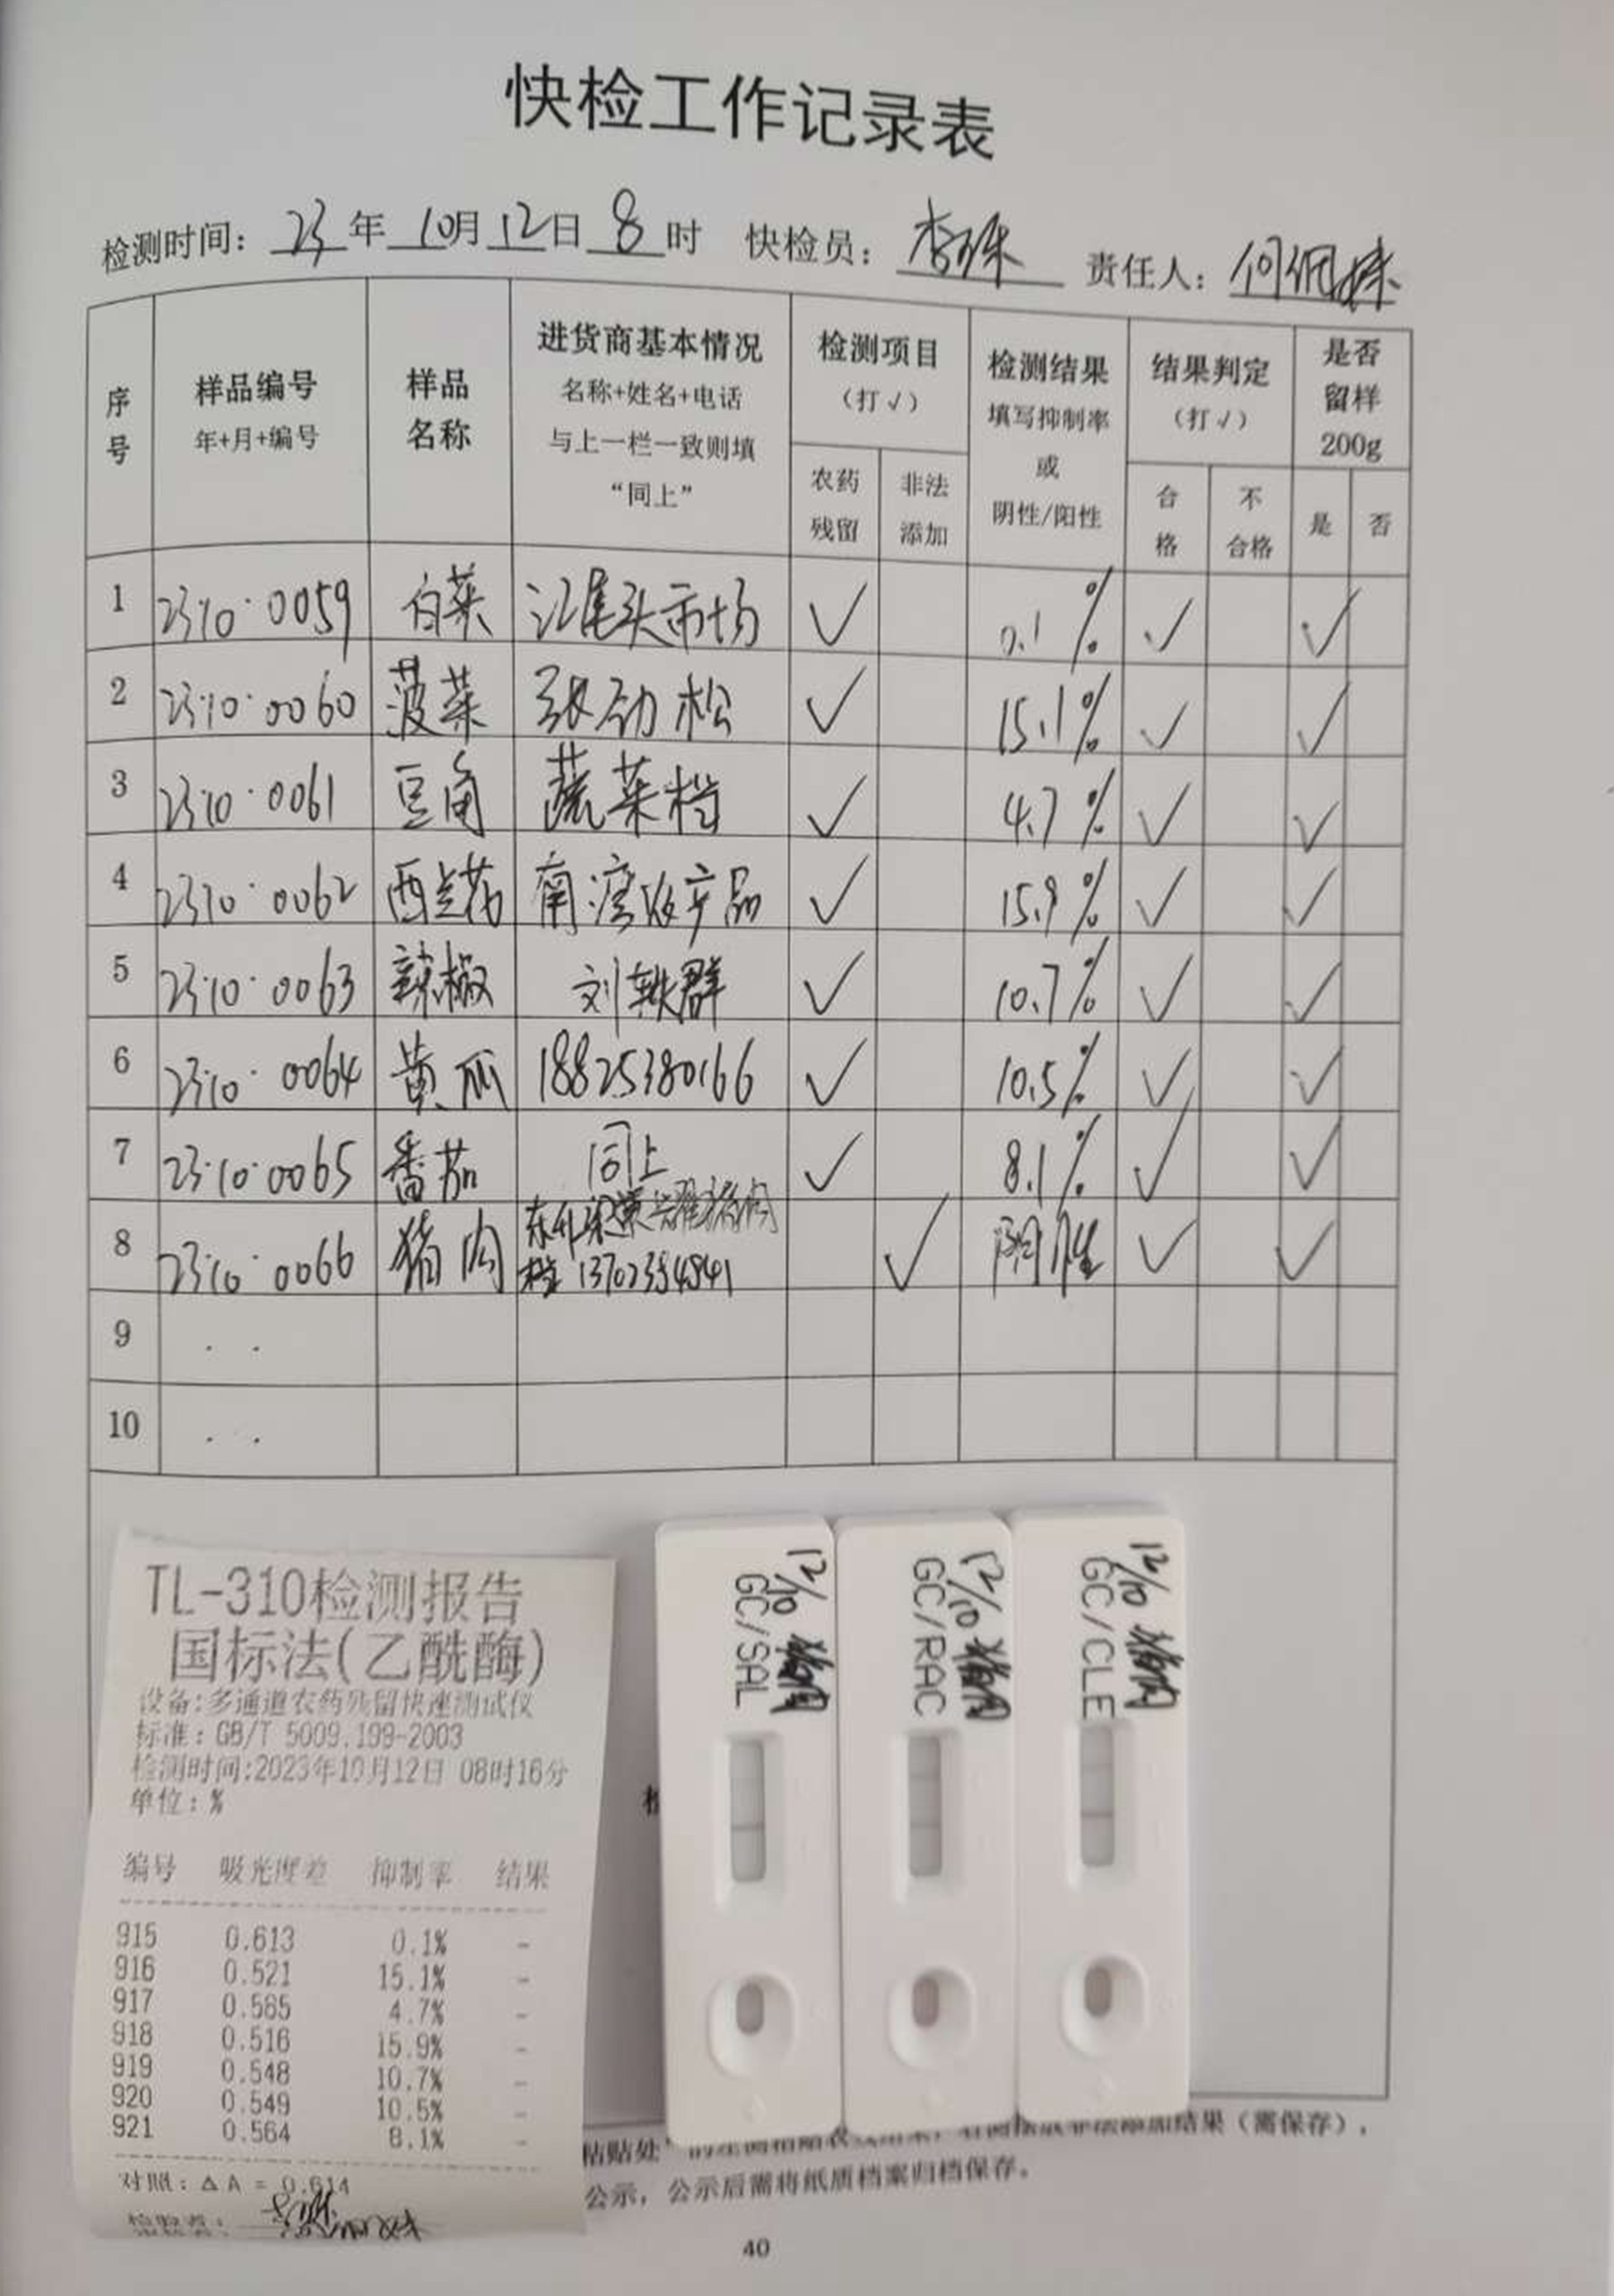 快检工作记录表
检测时间：23年10月12日8时 快检员：李珠 责任人：何佩
序号 样品编号 年+月+编号 样品名称 进货商基本情况 名称+姓名+电话 与上一栏一致则填“同上” 检测项目（打√） 农药残留 非法添加 检测结果 填写抑制率或阴性/阳性 结果判定（打√） 合格 不合格 是否留样200g 是 否
1 23·10·0059 白菜 江尾头市场 √ 0.1% √ √
2 23·10·0060 菠菜 张劲松 √ 15.1% √ √
3 23·10·0061 豆角 蔬菜档 √ 4.7% √ √
4 23·10·0062 西兰花 南湾农产品 √ 15.9% √ √
5 23·10·0063 辣椒 刘轶群 √ 10.7% √ √
6 23·10·0064 黄瓜 18825380166 √ 10.5% √ √
7 23·10·0065 番茄 同上 √ 8.1% √ √
8 23·10·0066 猪肉 东升梁 猪肉档 √ 阴性 √ √
9 · ·
10 · ·
TL-310检测报告
国标法(乙酰酶)
设备:多通道农药残留快速测试仪
标准：GB/T 5009.199-2003
检测时间:2023年10月12日 08时16分
单位：%
编号 吸光度差 抑制率 结果
915 0.613 0.1% -
916 0.521 15.1% -
917 0.585 4.7% -
918 0.516 15.9% -
919 0.548 10.7% -
920 0.549 10.5% -
921 0.564 8.1% -
对照：△A = 0.614
检验员：
12/10 猪肉
GC/SAL
12/10 猪肉
GC/RAC
12/10 猪肉
GC/CLE
粘贴处”
结果（需保存），
公示，公示后需将纸质档案归档保存。
40